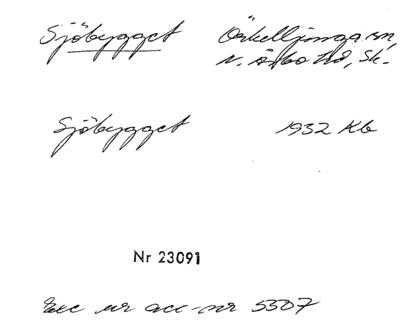 Sjöbygget Örkelljunga sn,
N. Åsbo hd, Sk.
Sjöbygget 1932 Kb
Nr 23091
Exc ur acc-nr 5307